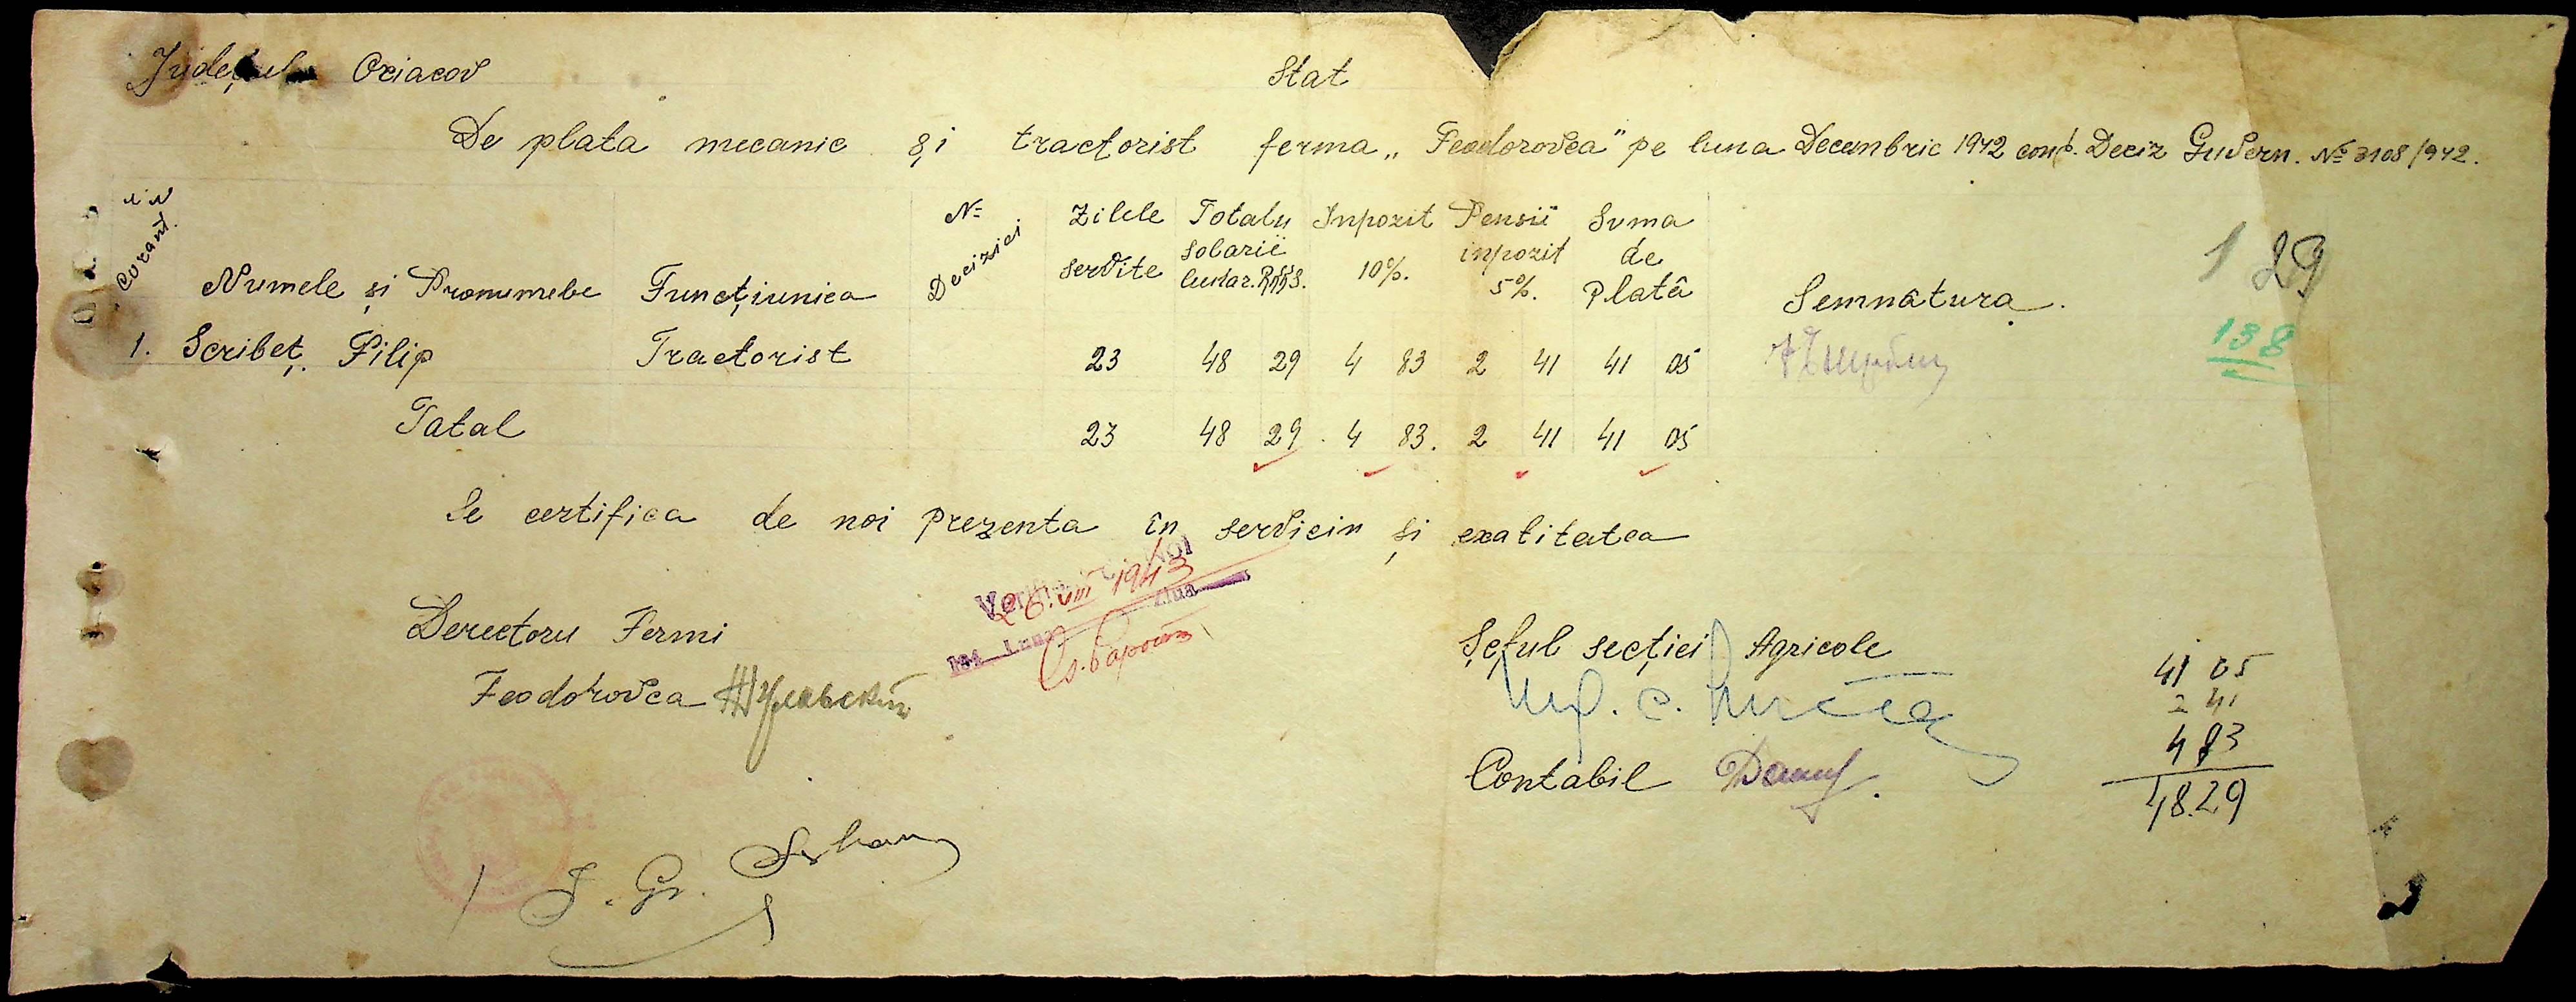 Județul Ociacov
Stat
De plata mecanic și tractorist ferma „Feodorovca" pe luna Decembrie 1942 conf. Deciz Guvern. № 3108/942.
Curant.
Numele și Pronumele
Funcțiunica
№ Deciziei
Zilele servite
Totalu Solarii lunar.
Inpozit 10%.
Pensii inpozit 5%.
Suma de Plată
Semnătura.
1. Scribeț. Filip Tractorist 23 48 29 4 83 2 41 41 05
Tatal 23 48 29 4 83. 2 41 41 05
1 29
138
Se certifica de noi prezenta în serviciu și exatitatea
26.VIII 1943
Ziua
Derectoru Fermi
Feodorovca
Șeful secției Agricole
Contabil
41 05
2 41
4 83
48.29